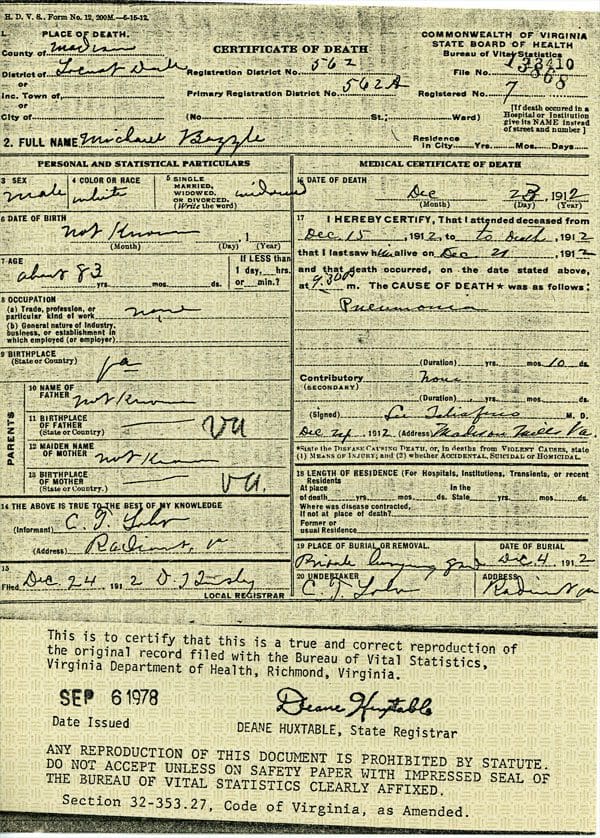 H. D. V. S., Form No. 12, 200M.—6-15-12.
1. PLACE OF DEATH.
County of Madison
District of Locust Dale
or
Inc. Town of
or
City of
CERTIFICATE OF DEATH
Registration District No. 562
Primary Registration District No. 562A
(No. St.; Ward)
COMMONWEALTH OF VIRGINIA
STATE BOARD OF HEALTH
Bureau of Vital Statistics
File No.
Registered No. 7
[If death occurred in a
Hospital or Institution
give its NAME instead
of street and number]
2. FULL NAME Michael Bazzle
Residence
in City Yrs. Mos. Days
PERSONAL AND STATISTICAL PARTICULARS
3 SEX
male
4 COLOR OR RACE
white
5 SINGLE
MARRIED,
WIDOWED,
OR DIVORCED.
(Write the word)
widowed
6 DATE OF BIRTH
not Known 1
(Month) (Day) (Year)
7 AGE
about 83
yrs. mos. ds.
If LESS than
1 day, hrs.
or min.?
8 OCCUPATION
(a) Trade, profession, or
particular kind of work none
(b) General nature of Industry,
business, or establishment in
which employed (or employer)
9 BIRTHPLACE
(State or Country) Va
PARENTS
10 NAME OF
FATHER not Known
11 BIRTHPLACE
OF FATHER
(State or Country) Va
12 MAIDEN NAME
OF MOTHER not K
13 BIRTHPLACE
OF MOTHER
(State or Country.) Va.
14 THE ABOVE IS TRUE TO THE BEST OF MY KNOWLEDGE
(Informant) C. F.
(Address) Radiant, Va
15
Filed Dec 24 191 2
LOCAL REGISTRAR
MEDICAL CERTIFICATE OF DEATH
16 DATE OF DEATH
Dec 23, 1912
(Month) (Day) (Year)
17 I HEREBY CERTIFY, That I attended deceased from
Dec. 15, 1912, to to Death, 1912
that I last saw him alive on Dec. 21, 1912
and that death occurred, on the date stated above,
at 9.30 P m. The CAUSE OF DEATH * was as follows:
Pneumonia
(Duration) yrs. mos. 10 ds.
Contributory None
(SECONDARY)
(Duration) yrs. mos. ds.
(Signed) M. D.
Dec 24 1912 (Address) Madison Mills Va.
*State the DISEASE CAUSING DEATH, or, in deaths from VIOLENT CAUSES, state
(1) MEANS OF INJURY; and (2) whether ACCIDENTAL, SUICIDAL OF HOMICIDAL.
18 LENGTH OF RESIDENCE (For Hospitals, Institutions, Transients, or recent
Residents
At place In the
of death yrs. mos. ds. State yrs. mos. ds.
Where was disease contracted,
If not at place of death?
Former or
usual Residence
19 PLACE OF BURIAL OR REMOVAL.
Private burying grd
DATE OF BURIAL
Dec. 4, 191 2
20 UNDERTAKER
C. F.
ADDRESS
Radiant Va
This is to certify that this is a true and correct reproduction of
the original record filed with the Bureau of Vital Statistics,
Virginia Department of Health, Richmond, Virginia.
SEP 6 1978
Date Issued
Deane Huxtable
DEANE HUXTABLE, State Registrar
ANY REPRODUCTION OF THIS DOCUMENT IS PROHIBITED BY STATUTE.
DO NOT ACCEPT UNLESS ON SAFETY PAPER WITH IMPRESSED SEAL OF
THE BUREAU OF VITAL STATISTICS CLEARLY AFFIXED.
Section 32-353.27, Code of Virginia, as Amended.